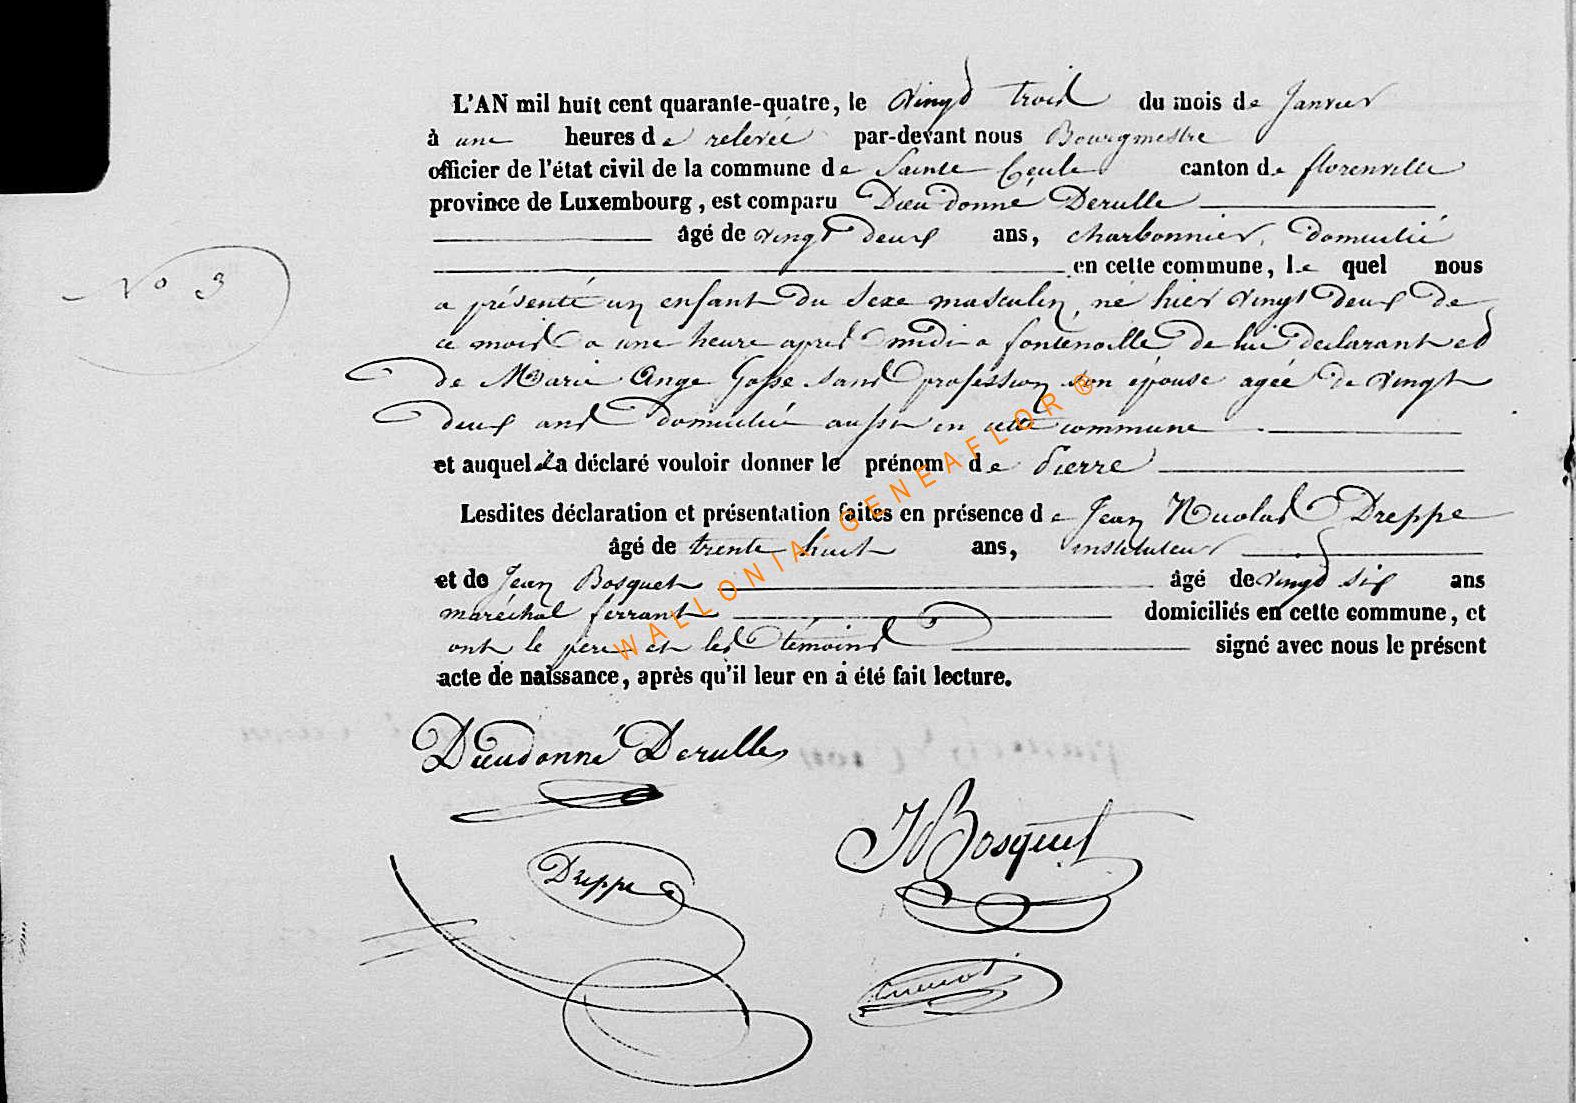 L'AN mil huit cent quarante-quatre, le vingt trois du mois de Janvier
à une heures de relevée par-devant nous Bourgmestre
officier de l'état civil de la commune de Sainte Cécile canton de florenville
province de Luxembourg, est comparu Dieudonné Derulle
âgé de vingt deux ans, charbonnier, domicilié
en cette commune, le quel nous
N° 3
a présenté un enfant du sexe masculin, né hier vingt deux de
ce mois a une heure après midi a fontenoille de lui declarant et
de Marie Ange Gosse sans profession son épouse agée de vingt
deux ans domiciliée aussi en cette commune
et auquel il a déclaré vouloir donner le prénom de Pierre
Lesdites déclaration et présentation faites en présence de Jean Nicolas Dreppe
âgé de trente huit ans, instituteur
et de Jean Bosquet âgé de vingt six ans
maréchal ferrant domiciliés en cette commune, et
ont le père et les témoins signé avec nous le présent
acte de naissance, après qu'il leur en a été fait lecture.
WALLONIA-GENEAFLOR®
Dieudonné Derulle
JBosquet
Dreppe